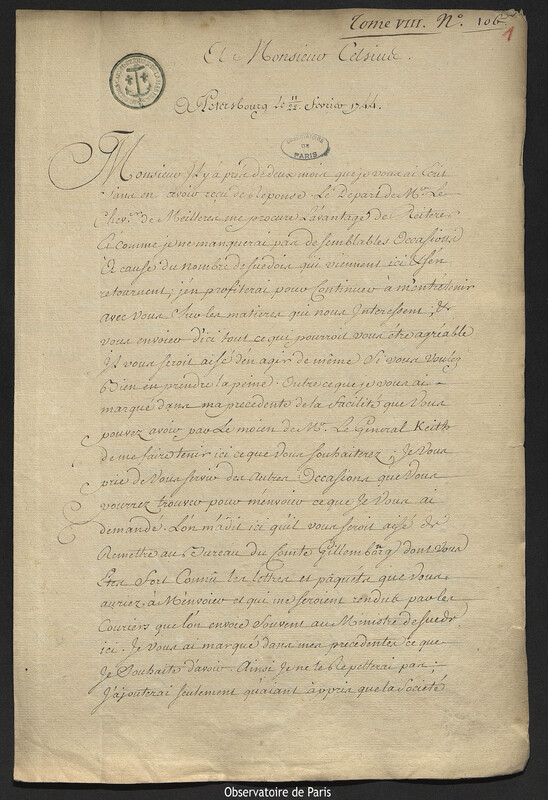 Tome VIII. N.º 106
1
A Monsieur Celsius.
A Petersbourg le 11/22 fevrier 1744.
OBSERVATOIRE
DE
PARIS
Monsieur Il y a près de deux mois que je vous ai écrit
sans en avoir reçu de Réponse. Le Départ de Mr. Le
Chevr. de Meilleres me procure l'avantage de Reiterer
Et comme je ne manquerai pas de semblables Occasions
à cause du nombre de suedois qui viennent ici & s'en
retournent; j'en profiterai pour Continuer à m'entretenir
avec Vous Sur les matieres qui nous Interessent, &
vous envoier d'ici tout ce qui pourroit vous être agréable
Il vous seroit aisé d'en agir de même Si vous vouliez
Bien en prendre la peine. Outre ce que je vous ai
marqué dans ma precedente de la facilité que Vous
pouvez avoir par Le moien de Mr. Le General Keith
de me faire tenir ici ce que Vous souhaiterez; Je Vous
prie de Vous servir des autres Occasions que Vous
pourrez trouver pour m'envoier ce que Je Vous ai
demandé. L'on m'a dit ici qu'il vous seroit aisé de
Remettre au Bureau du Comte Gillemborg dont Vous
Etes Fort Connû les lettres et paquets que Vous
auriez à M'envoier et qui me seroient rendus par les
Couriers que l'on envoie Souvent au Ministre de suede
ici. Je vous ai marqué dans mes precedentes ce que
Je Souhaite d'avoir. Ainsi Je ne le Repetterai pas;
J'ajouterai seulement qu'aiant appris que la Société
Observatoire de Paris